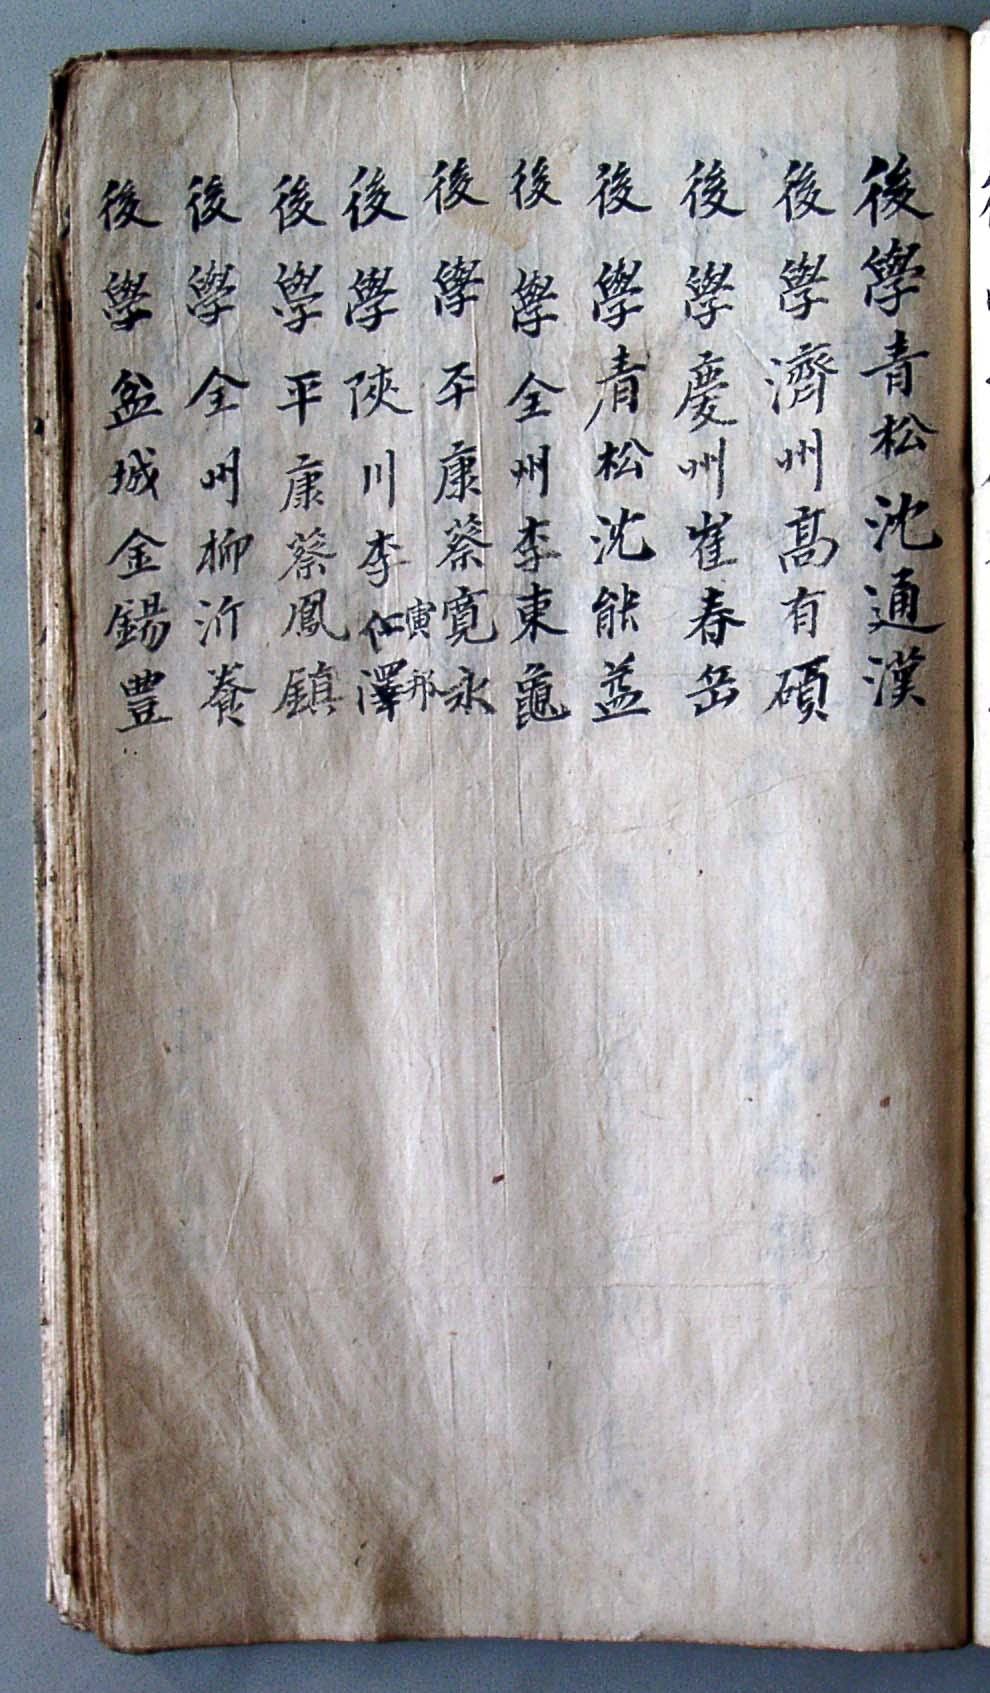 後學青松沈通漢
後學濟州高有碩
後學慶州崔春岳
後學靑松沈能益
後學全州李東龜
後學平康蔡寬永
寅邦
後學陜川李仁澤
後學平康蔡鳳鎮
後學全州柳沂養
後學盆城金錫豊